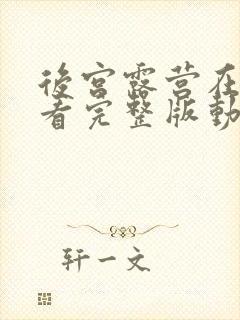 後宮露营在
看完整版動
轩一文